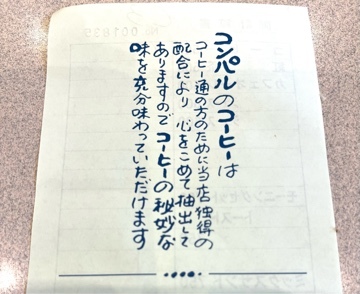 コンパルのコーヒーは
コーヒー通の方のために当店独得の
配合により 心をこめて抽出して
ありますのでコーヒーの秘妙な
味を充分味わっていただけます